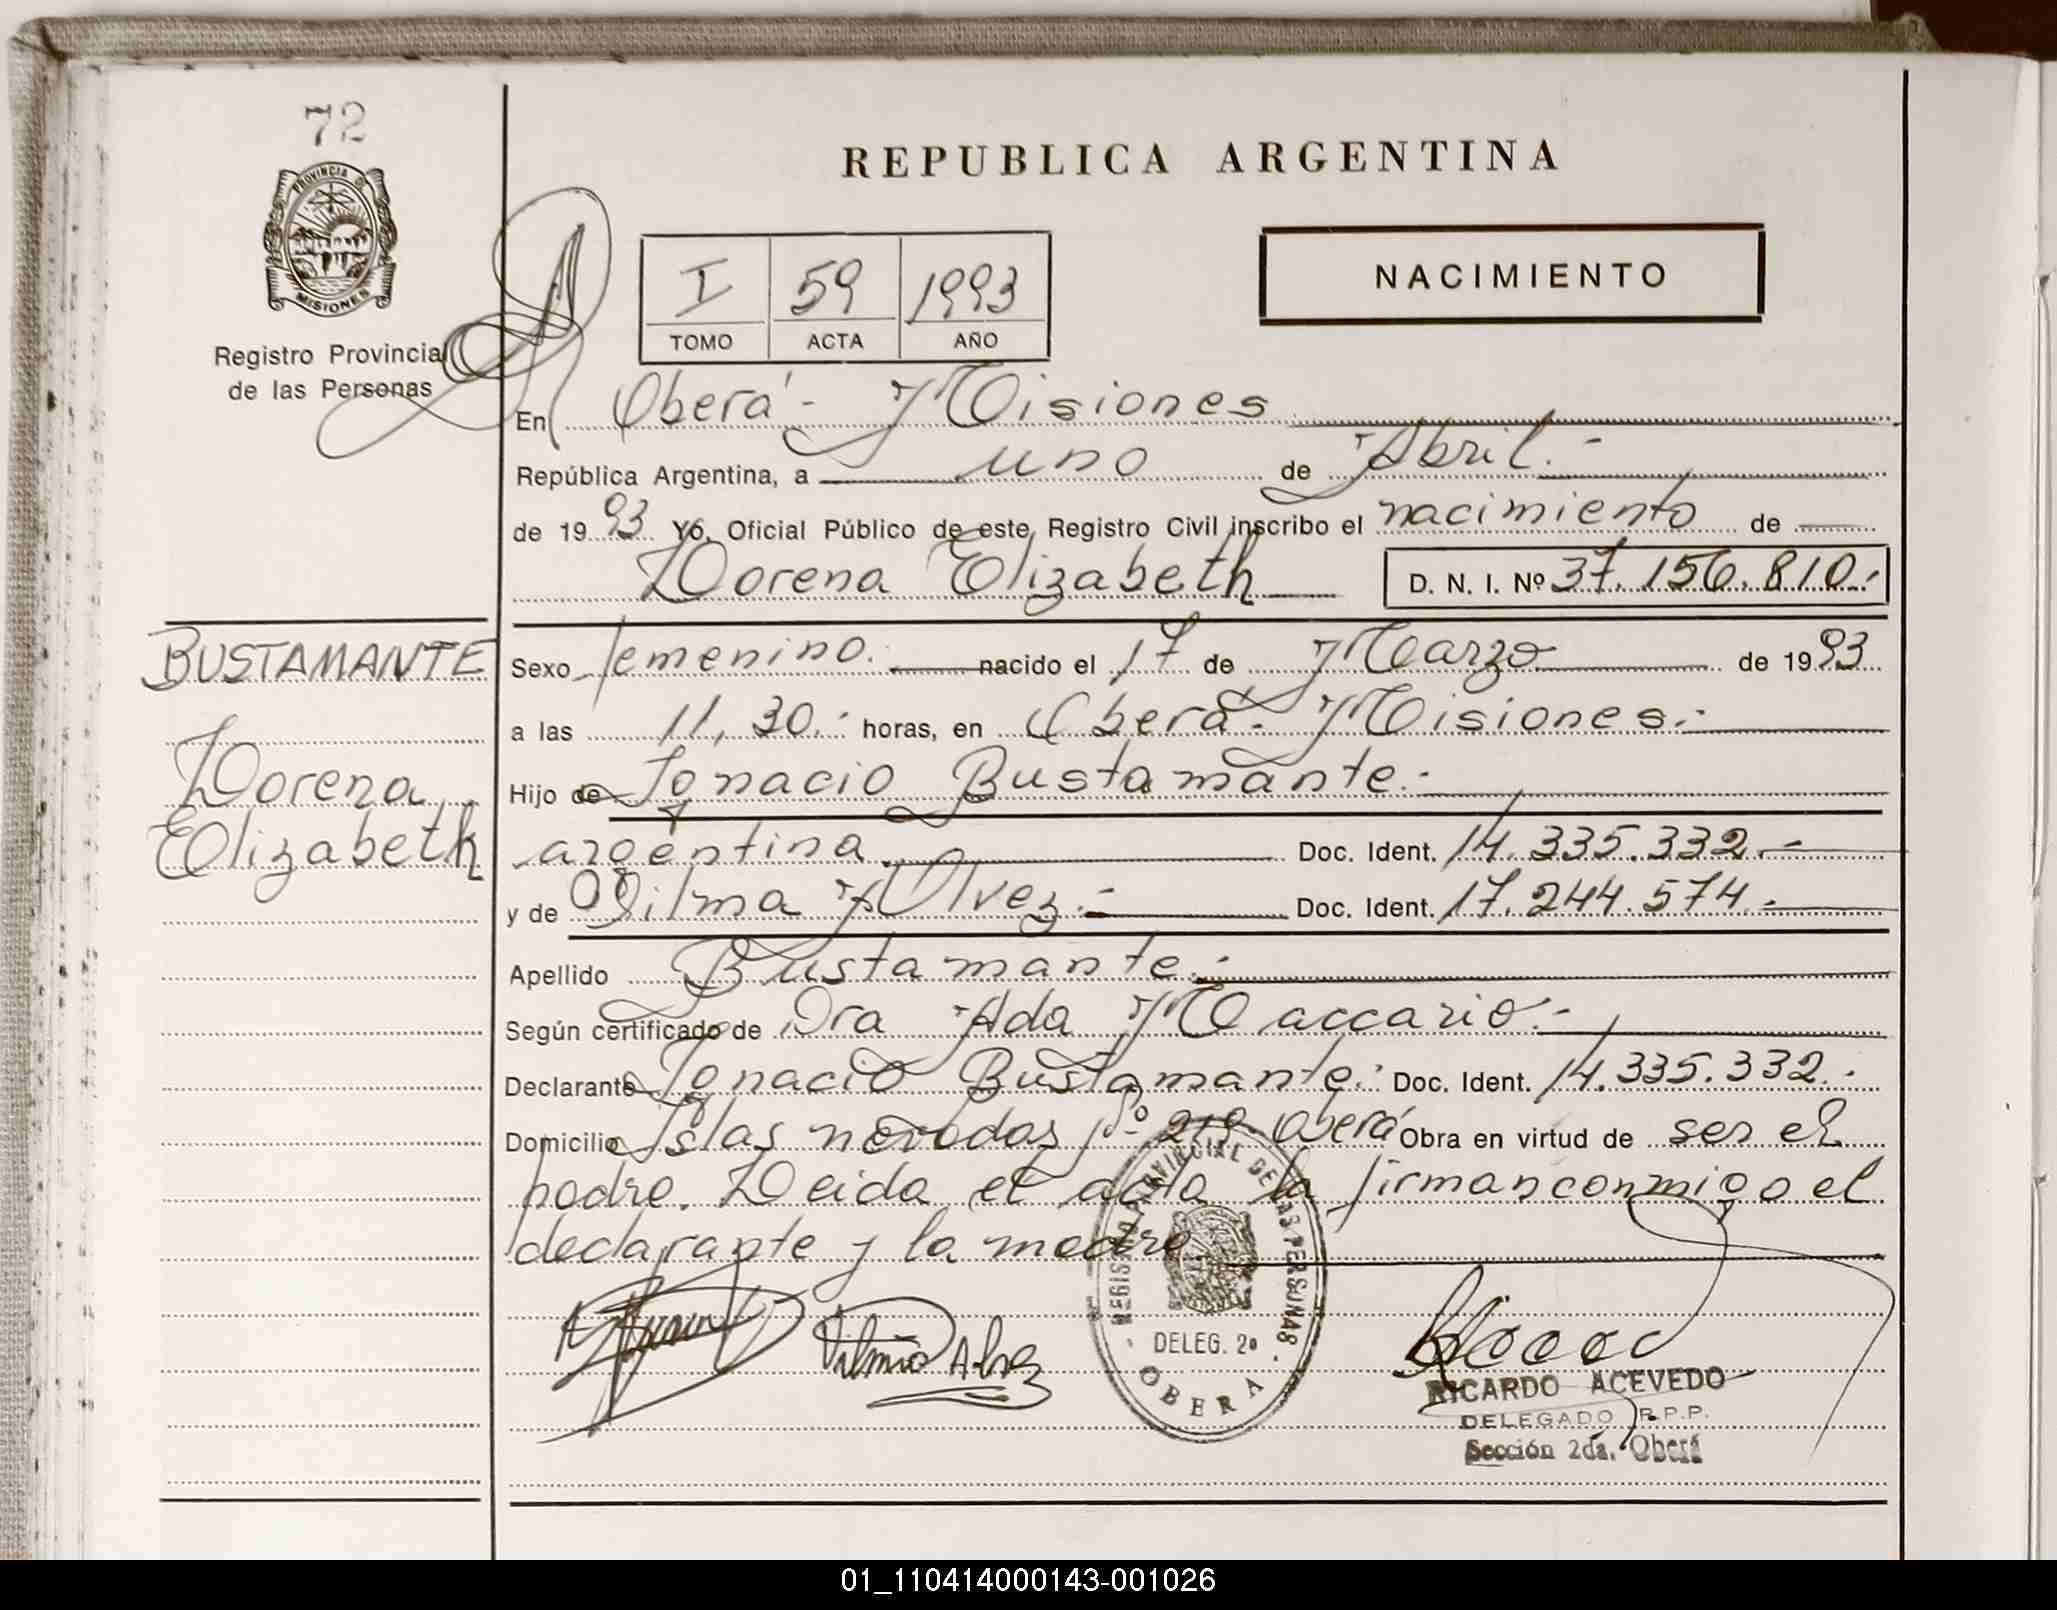 72
PROVINCIA DE
MISIONES
Registro Provincial
de las Personas
REPUBLICA ARGENTINA
I 59 1993
TOMO ACTA AÑO
NACIMIENTO
En Oberá - Misiones
República Argentina, a uno de Abril.-
de 1993 Yo, Oficial Público de este Registro Civil inscribo el nacimiento de
Lorena Elizabeth D. N. I. Nº 37.156.810.-
BUSTAMANTE
Lorena
Elizabeth
Sexo femenino.- nacido el 17 de Marzo de 1993
a las 11,30.- horas, en Oberá - Misiones.-
Hijo de Ignacio Bustamante.-
argentina. Doc. Ident. 14.335.332.-
y de Vilma Alvez.- Doc. Ident. 17.244.574.-
Apellido Bustamante.-
Según certificado de Dra Ada Maccario.-
Declarante Ignacio Bustamante.- Doc. Ident. 14.335.332.-
Domicilio Islas Nº Oberá Obra en virtud de ser el
padre. Leida el acta la firman conmigo el
declarante y la madre
Vilma Alvez
REGISTRO PROVINCIAL DE LAS PERSONAS
DELEG. 2a
OBERA
RICARDO ACEVEDO
DELEGADO R.P.P.
Sección 2da. Oberá
01_110414000143-001026